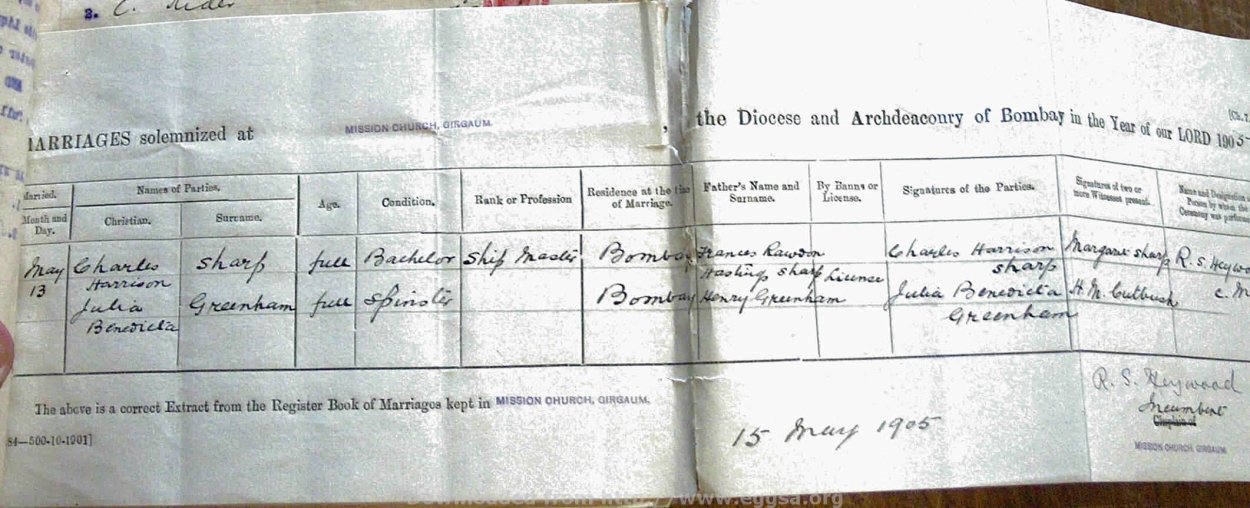 2. C.
MARRIAGES solemnized at MISSION CHURCH, GIRGAUM. , the Diocese and Archdeaconry of Bombay in the Year of our LORD 1905
Married. Names of Parties. Age. Condition. Rank or Profession Residence at the time of Marriage. Father's Name and Surname. By Banns or License. Signatures of the Parties. Signatures of two or more Witnesses present. Name and Designation Person by whom the Ceremony was performed
Month and Day. Christian. Surname.
May 13 Charles Harrison Sharp full Bachelor Ship Master Bombay Frances Rawdon Hastings Sharp License Charles Harrison Sharp Margaret Sharp R. S. Heywo
Julia Benedicta Greenham full Spinster Bombay Henry Greenham Julia Benedicta Greenham H. M. Cutbush C. M
The above is a correct Extract from the Register Book of Marriages kept in MISSION CHURCH, GIRGAUM.
R. S. Heywood
Incumbent
15 May 1905
Chaplain of
MISSION CHURCH, GIRGAUM
84—500-10-1901]
Downloaded from http://www.eggsa.org